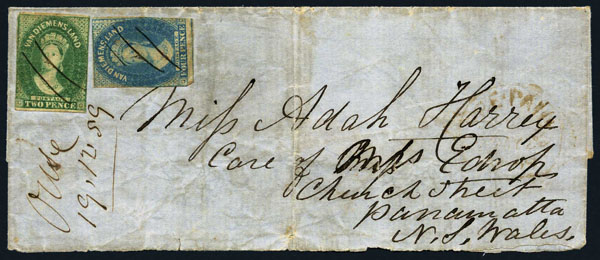 VAN DIEMENS LAND
POSTAGE
TWO PENCE
VAN DIEMENS LAND
POSTAGE
FOUR PENCE
19.12.59
Miss Adah Harrey
Care of Edrop
Church Street
Parramatta
N. S. Wales.